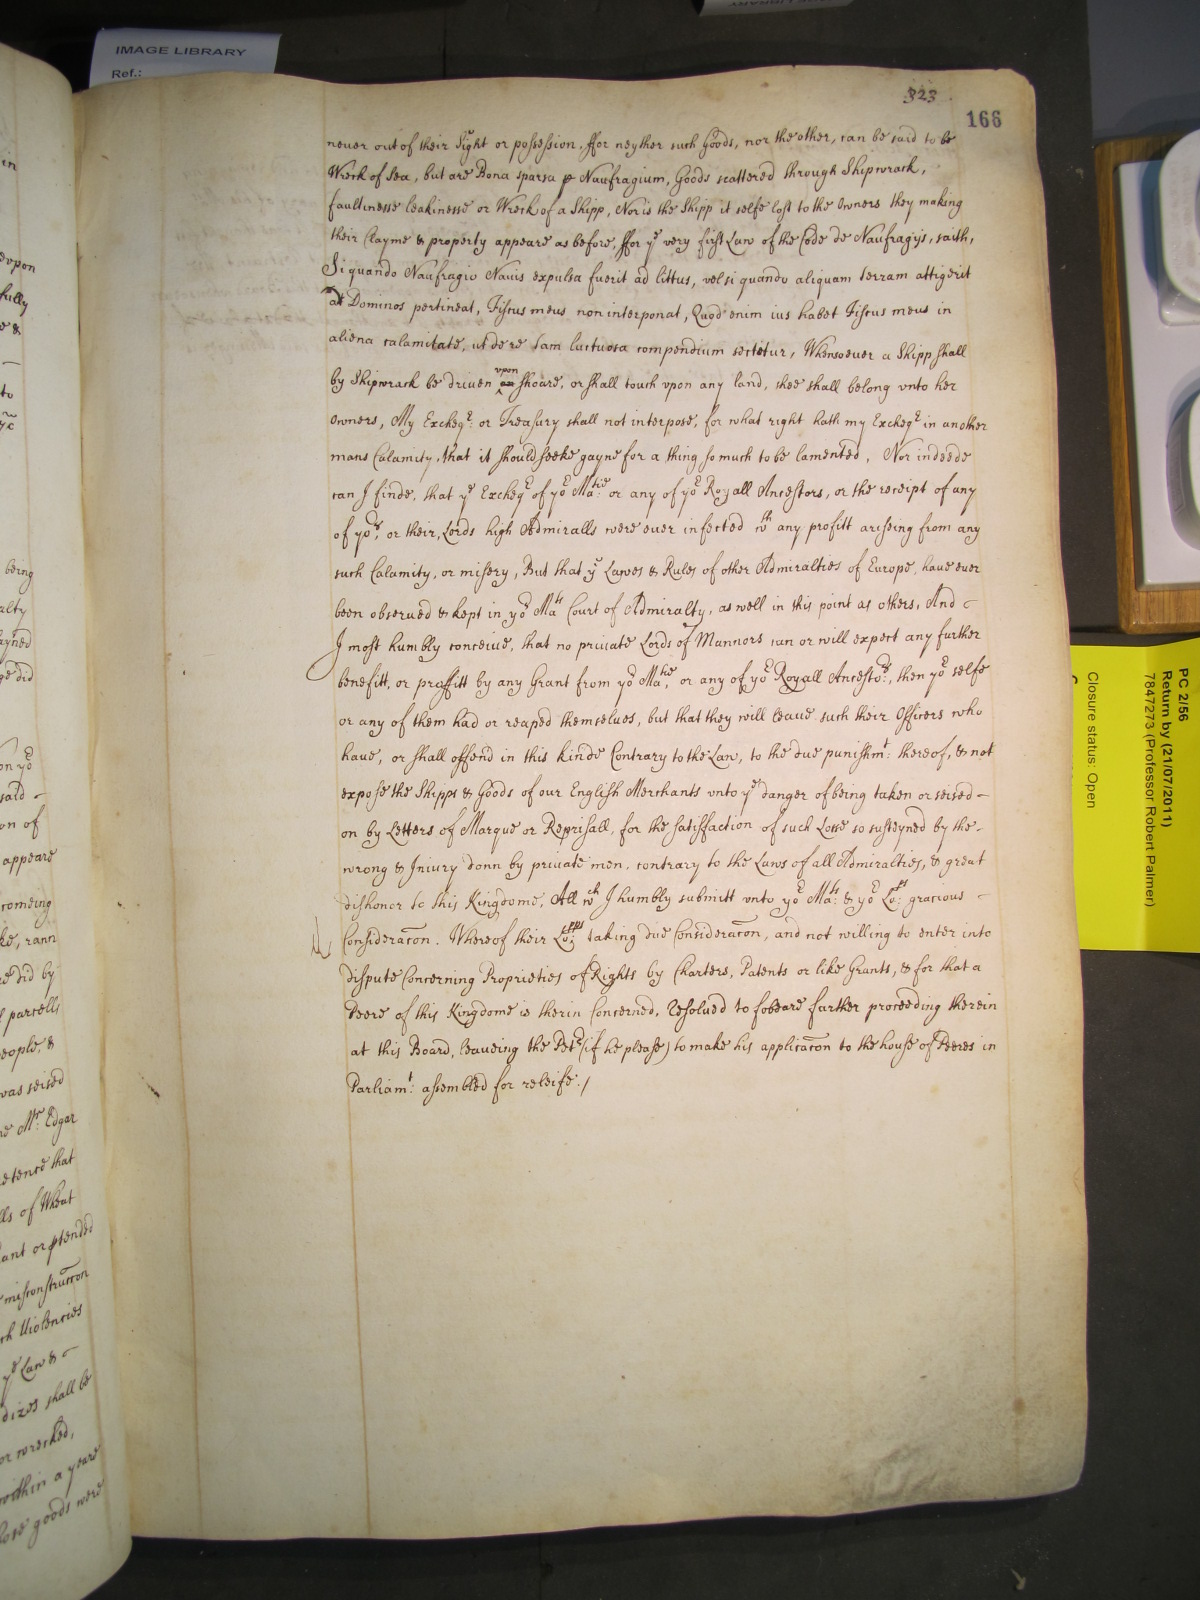 IMAGE LIBRARY
Ref.:
323
166
never out of their Sight or possession. ffor neyther such Goods, nor the other, can be said to be
Wreck of Sea, but are Bona sparsa p Naufragium, Goods scattered through Shipwrack,
faultinesse leakinesse or Wreck of a Shipp, Nor is the Shipp it selfe lost to the Owners they making
their Clayme & property appeare as before, ffor ye very first Law of the Code de Naufragijs, saith,
Si quando Naufragio Nauis expulsa fuerit ad littus, vel si quando aliquam terram attigerit
ad Dominos pertineat, Fiscus meus non interponat, Quod enim ius habet Fiscus meus in
aliena calamitate, ut de re tam luctuosa compendium sectetur, Whensoeuer a Shipp shall
by Shipwrack be driven vpon shoare, or shall touch vpon any land, shee shall belong vnto her
Owners, My Excheqr: or Treasury shall not interpose, for what right hath my Excheqr in another
mans Calamity, that it should seeke gayne for a thing so much to be lamented, Nor indeede
can I finde, that ye Excheqr of yor Matie: or any of yor Royall Ancestors, or the receipt of any
of yors, or their Lords high Admiralls were euer infected wth any profitt arissing from any
such Calamity, or misery, But that ye Lawes & Rules of other Admiralties of Europe, have euer
been obserued & kept in yor Mats Court of Admiralty, as well in this point as others, And
I most humbly conceiue, that no priuate Lords of Mannors can or will expect any further
benefitt, or proffitt by any Grant from yor Matie, or any of yor Royall Ancestors:, then yor selfe
or any of them had or reaped themselues, but that they will leaue such their Officers who
haue, or shall offend in this kinde Contrary to the Law, to the due punishmt: thereof, & not
expose the Shipps & Goods of our English Merchants vnto ye danger of being taken or seised
on by Letters of Marque or Reprisall, for the satisfaction of such Losse so susteyned by the
wrong & Iniury donn by priuate men, contrary to the Laws of all Admiralties, & great
dishonor to this Kingdome, All wch I humbly submitt vnto yor Mats: & yor Lopps: gracious
Consideracon. Whereof their Lopps: taking due Consideracon, and not willing to enter into
dispute Concerning Proprieties of Rights by Charters, Patents or like Grants, & for that a
Peere of this Kingdome is therin Concerned, Resolued to forbeare further proceeding therein
at this Board, leaueing the Petr (if he please) to make his applicacon to the house of Peeres in
Parliamt: assembled for releife./
in
vpon
fully
e &
to
being
alty
ayned
ge did
on yor
said
on of
appeare
comeing
ke, rann
e did by
parcells
people, &
was seised
Mr: Edgar
etence that
lls of Wheat
ant or ptended
misconstruccon
ch Uiolencies
ye Law &
dizes shall be
or wrecked,
within a yeare
those goods were
PC 2/56
Return by (21/07/2011)
7847273 (Professor Robert Palmer)
Closure status: Open